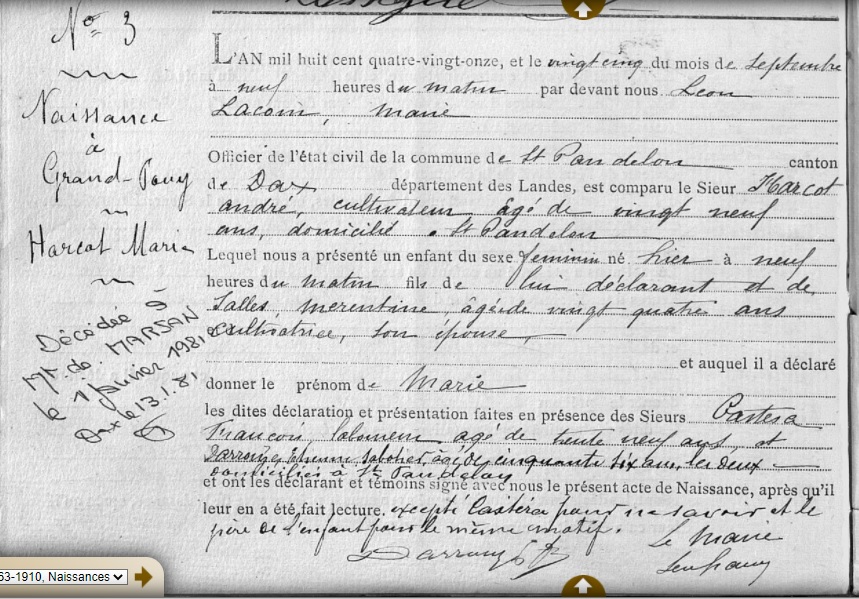 Nº 3
Naissance
à
Grand-Pouy
Harcot Marie
Décédée à
Mt. de. MARSAN
le 1 janvier 1981
Dax le 13.1.81
L'AN mil huit cent quatre-vingt-onze, et le vingt cinq du mois de septembre
à neuf heures du matin par devant nous Leon
Lacoin, Maire
Officier de l'état civil de la commune de St Pandelon canton
de Dax département des Landes, est comparu le Sieur Harcot
andré, cultivateur âgé de vingt neuf
ans, domicilié à St Pandelon
Lequel nous a présenté un enfant du sexe feminin né hier à neuf
heures du matin fils de lui déclarant et de
Salles, âgée de vingt quatre ans
cultivatrice, son épouse,
et auquel il a déclaré
donner le prénom de Marie
les dites déclaration et présentation faites en présence des Sieurs Castera
François, agé de trente neuf ans, et
Darrouy, Etienne sabotier, âgé de cinquante six ans, les deux
domiciliés à St Pandelon
et ont les déclarant et témoins signé avec nous le présent acte de Naissance, après qu'il
leur en a été fait lecture. excepté Castéra pour ne savoir et le
père de l'enfant pour le même motif.
Darrouy Le Maire
63-1910, Naissances